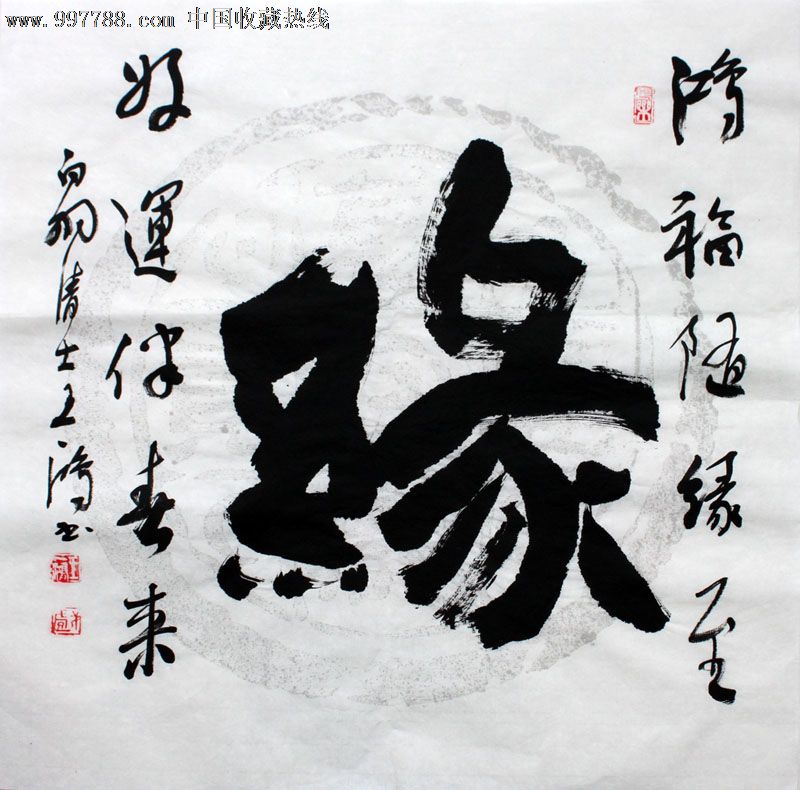 www.997788.com 中国收藏热线
鸿福随缘至
緣
好運伴春来
白翁清士王鸿书